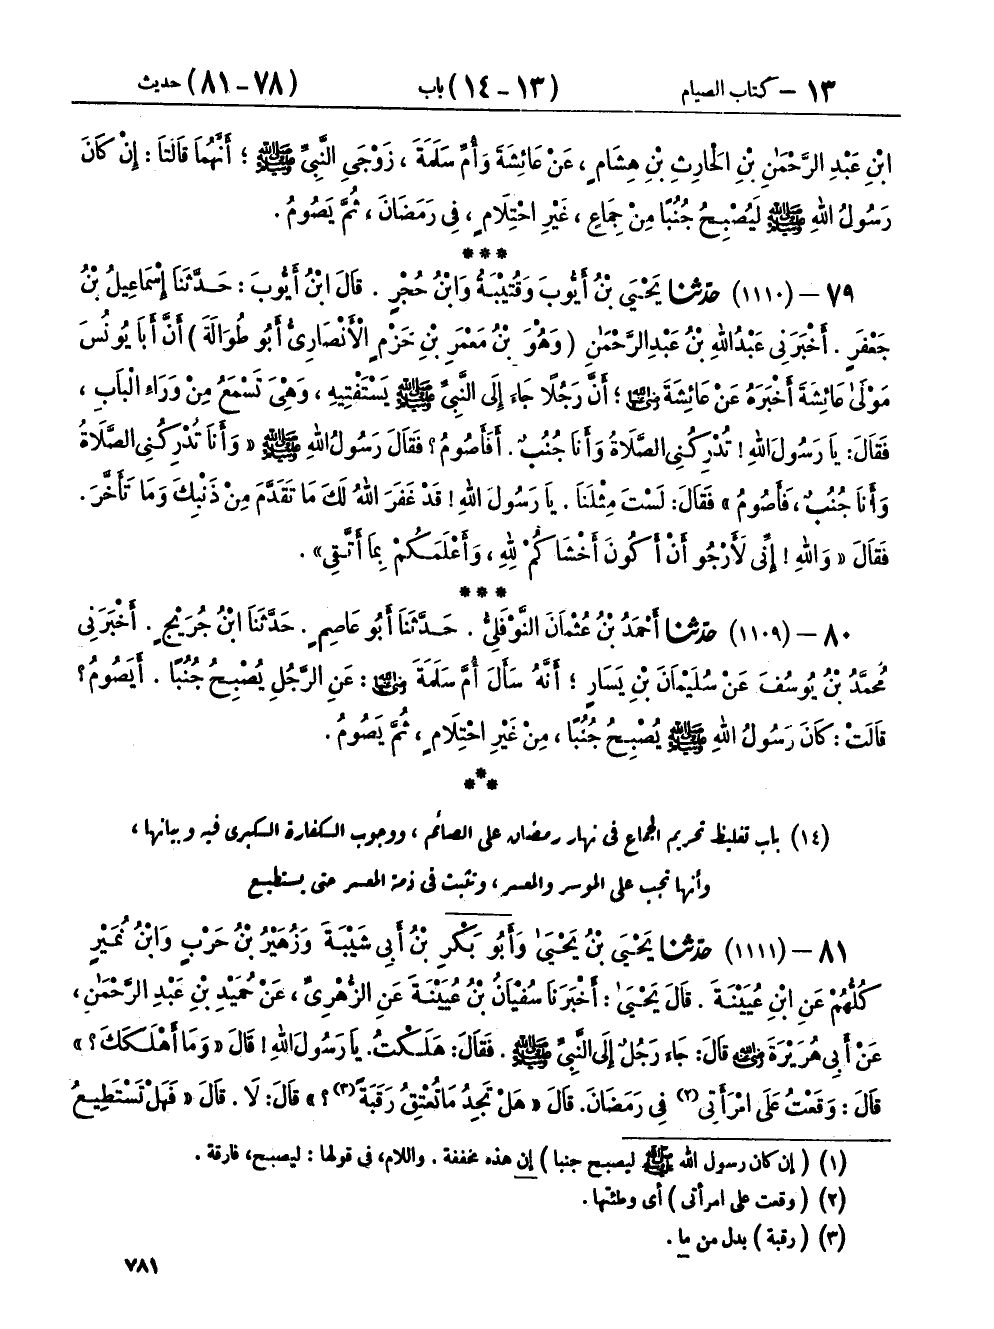 ١٣ - كتاب الصيام (١٣ - ١٤) باب (٧٨ - ٨١) حديث
ابْنِ عَبْدِ الرَّحْمَٰنِ بْنِ الْحَارِثِ بْنِ هِشَامٍ، عَنْ عَائِشَةَ وَأُمِّ سَلَمَةَ، زَوْجَيِ النَّبِيِّ ﷺ؛ أَنَّهُمَا قَالَتَا: إِنْ كَانَ
رَسُولُ اللهِ ﷺ لَيُصْبِحُ جُنُبًا مِنْ جِمَاعٍ، غَيْرِ احْتِلَامٍ، فِي رَمَضَانَ، ثُمَّ يَصُومُ.
***
٧٩ - (١١١٠) حَدَّثَنَا يَحْيَى بْنُ أَيُّوبَ وَقُتَيْبَةُ وَابْنُ حُجْرٍ. قَالَ ابْنُ أَيُّوبَ: حَدَّثَنَا إِسْمَاعِيلُ بْنُ
جَعْفَرٍ. أَخْبَرَنِي عَبْدُ اللهِ بْنُ عَبْدِ الرَّحْمَٰنِ (وَهُوَ بْنُ مَعْمَرِ بْنِ حَزْمٍ الْأَنْصَارِيُّ أَبُو طُوَالَةَ) أَنَّ أَبَا يُونُسَ
مَوْلَىٰ عَائِشَةَ أَخْبَرَهُ عَنْ عَائِشَةَ رضي الله عنها؛ أَنَّ رَجُلًا جَاءَ إِلَى النَّبِيِّ ﷺ يَسْتَفْتِيهِ، وَهْيَ تَسْمَعُ مِنْ وَرَاءِ الْبَابِ،
فَقَالَ: يَا رَسُولَ اللهِ! تُدْرِكُنِي الصَّلَاةُ وَأَنَا جُنُبٌ. أَفَأَصُومُ؟ فَقَالَ رَسُولُ اللهِ ﷺ «وَأَنَا تُدْرِكُنِي الصَّلَاةُ
وَأَنَا جُنُبٌ، فَأَصُومُ» فَقَالَ: لَسْتَ مِثْلَنَا. يَا رَسُولَ اللهِ! قَدْ غَفَرَ اللهُ لَكَ مَا تَقَدَّمَ مِنْ ذَنْبِكَ وَمَا تَأَخَّرَ.
فَقَالَ «وَاللهِ! إِنِّي لَأَرْجُو أَنْ أَكُونَ أَخْشَاكُمْ لِلهِ، وَأَعْلَمَكُمْ بِمَا أَتَّقِي».
***
٨٠ - (١١٠٩) حَدَّثَنَا أَحْمَدُ بْنُ عُثْمَانَ النَّوْفَلِيُّ. حَدَّثَنَا أَبُو عَاصِمٍ. حَدَّثَنَا ابْنُ جُرَيْجٍ. أَخْبَرَنِي
مُحَمَّدُ بْنُ يُوسُفَ عَنْ سُلَيْمَانَ بْنِ يَسَارٍ؛ أَنَّهُ سَأَلَ أُمَّ سَلَمَةَ رضي الله عنها: عَنِ الرَّجُلِ يُصْبِحُ جُنُبًا. أَيَصُومُ؟
قَالَتْ: كَانَ رَسُولُ اللهِ ﷺ يُصْبِحُ جُنُبًا، مِنْ غَيْرِ احْتِلَامٍ، ثُمَّ يَصُومُ.
***
(١٤) باب تغليظ تحريم الجماع في نهار رمضان على الصائم، ووجوب الكفارة الكبرى فيه وبيانها،
وأنها تجب على الموسر والمعسر، وتثبت في ذمة المعسر حتى يستطيع
٨١ - (١١١١) حَدَّثَنَا يَحْيَى بْنُ يَحْيَىٰ وَأَبُو بَكْرِ بْنُ أَبِي شَيْبَةَ وَزُهَيْرُ بْنُ حَرْبٍ وَابْنُ نُمَيْرٍ
كُلُّهُمْ عَنِ ابْنِ عُيَيْنَةَ. قَالَ يَحْيَىٰ: أَخْبَرَنَا سُفْيَانُ بْنُ عُيَيْنَةَ عَنِ الزُّهْرِيِّ، عَنْ حُمَيْدِ بْنِ عَبْدِ الرَّحْمَٰنِ،
عَنْ أَبِي هُرَيْرَةَ رضي الله عنه قَالَ: جَاءَ رَجُلٌ إِلَى النَّبِيِّ ﷺ. فَقَالَ: هَلَكْتُ. يَا رَسُولَ اللهِ! قَالَ «وَمَا أَهْلَكَكَ؟»
قَالَ: وَقَعْتُ عَلَى امْرَأَتِي(٢) فِي رَمَضَانَ. قَالَ «هَلْ تَجِدُ مَا تُعْتِقُ رَقَبَةً(٣)؟» قَالَ: لَا. قَالَ «فَهَلْ تَسْتَطِيعُ
(١) (إن كان رسول الله ﷺ ليصبح جنبا) إن هذه مخففة. واللام، في قولها: ليصبح، فارقة.
(٢) (وقعت على امرأتي) أي وطئتها.
(٣) (رقبة) بدل من ما.
٧٨١